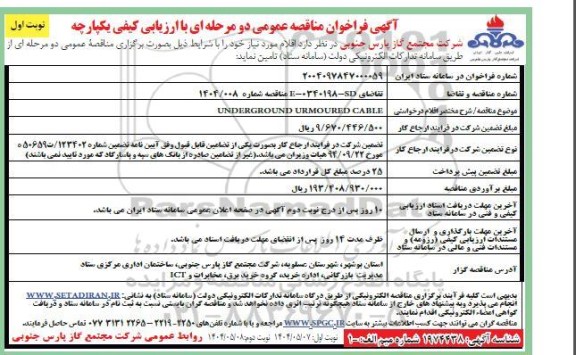 نوبت اول
آگهی فراخوان مناقصه عمومی دو مرحله ای با ارزیابی کیفی یکپارچه
شرکت مجتمع گاز پارس جنوبی در نظر دارد اقلام مورد نیاز خود را با شرایط ذیل بصورت برگزاری مناقصهٔ عمومی دو مرحله ای از
طریق سامانه تدارکات الکترونیکی دولت (سامانه ستاد) تامین نماید:
شماره فراخوان در سامانه ستاد ایران
۲۰۰۴۰۹۷۸۴۷۰۰۰۰۵۹
شماره مناقصه و تقاضا
تقاضای E-۰۳۴۰۱۹۸-SD مناقصه شماره ۱۴۰۴/۰۰۸
موضوع مناقصه/ شرح مختصر اقلام درخواستی
UNDERGROUND URMOURED CABLE
مبلغ تضمین شرکت در فرایند ارجاع کار
۹/۶۷۰/۴۴۶/۵۰۰ ریال
نوع تضمین شرکت در فرایند ارجاع کار
تضمین شرکت در فرایند ارجاع کار بصورت یکی از تضامین قابل قبول وفق آیین نامه تضمین شماره ۱۲۳۴۰۲/ت۵۰۶۵۹ه
مورخ ۹۴/۰۹/۲۲ هیات وزیران می باشد.(غیر از تضامین صادره از بانک های سپه و پاسارگاد که مورد تایید نمی باشند)
مبلغ تضمین پیش پرداخت
۲۵ درصد مبلغ کل قرارداد می باشد.
مبلغ برآوردی مناقصه
۱۹۳/۴۰۸/۹۳۰/۰۰۰ ریال
آخرین مهلت دریافت اسناد ارزیابی
کیفی و فنی در سامانه ستاد
۱۰ روز پس از درج نوبت دوم آگهی در صفحه اعلان عمومی سامانه ستاد ایران می باشد.
آخرین مهلت بارگذاری و ارسال
مستندات ارزیابی کیفی (رزومه) و
مستندات فنی و مالی در سامانه ستاد
ظرف مدت ۱۴ روز پس از انقضای مهلت دریافت اسناد می باشد.
آدرس مناقصه گزار
استان بوشهر، شهرستان عسلویه، شرکت مجتمع گاز پارس جنوبی، ساختمان اداری مرکزی ستاد
مدیریت بازرگانی، اداره خرید، گروه خرید برق، مخابرات و ICT
بدیهی است کلیه فرآیند برگزاری مناقصه الکترونیکی از طریق درگاه سامانه تدارکات الکترونیکی دولت (سامانه ستاد) به نشانی: WWW.SETADIRAN.IR
انجام می پذیرد و به پیشنهاد های خارج از سامانه ستاد هیچگونه ترتیب اثری داده نخواهد شد و مناقصه گران بایستی نسبت به ثبت نام در سامانه ستاد و دریافت
گواهی امضاء الکترونیکی اقدام نمایند.
مناقصه گران می توانند جهت کسب اطلاعات بیشتر به سایت WWW.SPGC.IR مراجعه و یا با شماره تلفن های ۲۲۵۰-۲۲۱۹-۲۲۶۵ ۳۱۳۱ ۰۷۷ تماس حاصل فرمایند.
شناسه آگهی: ۱۹۷۴۴۳۸ شماره میم الف: ۱۰۰
نوبت اول: ۱۴۰۴/۰۵/۰۷ نوبت دوم: ۱۴۰۴/۰۵/۰۸
روابط عمومی شرکت مجتمع گاز پارس جنوبی